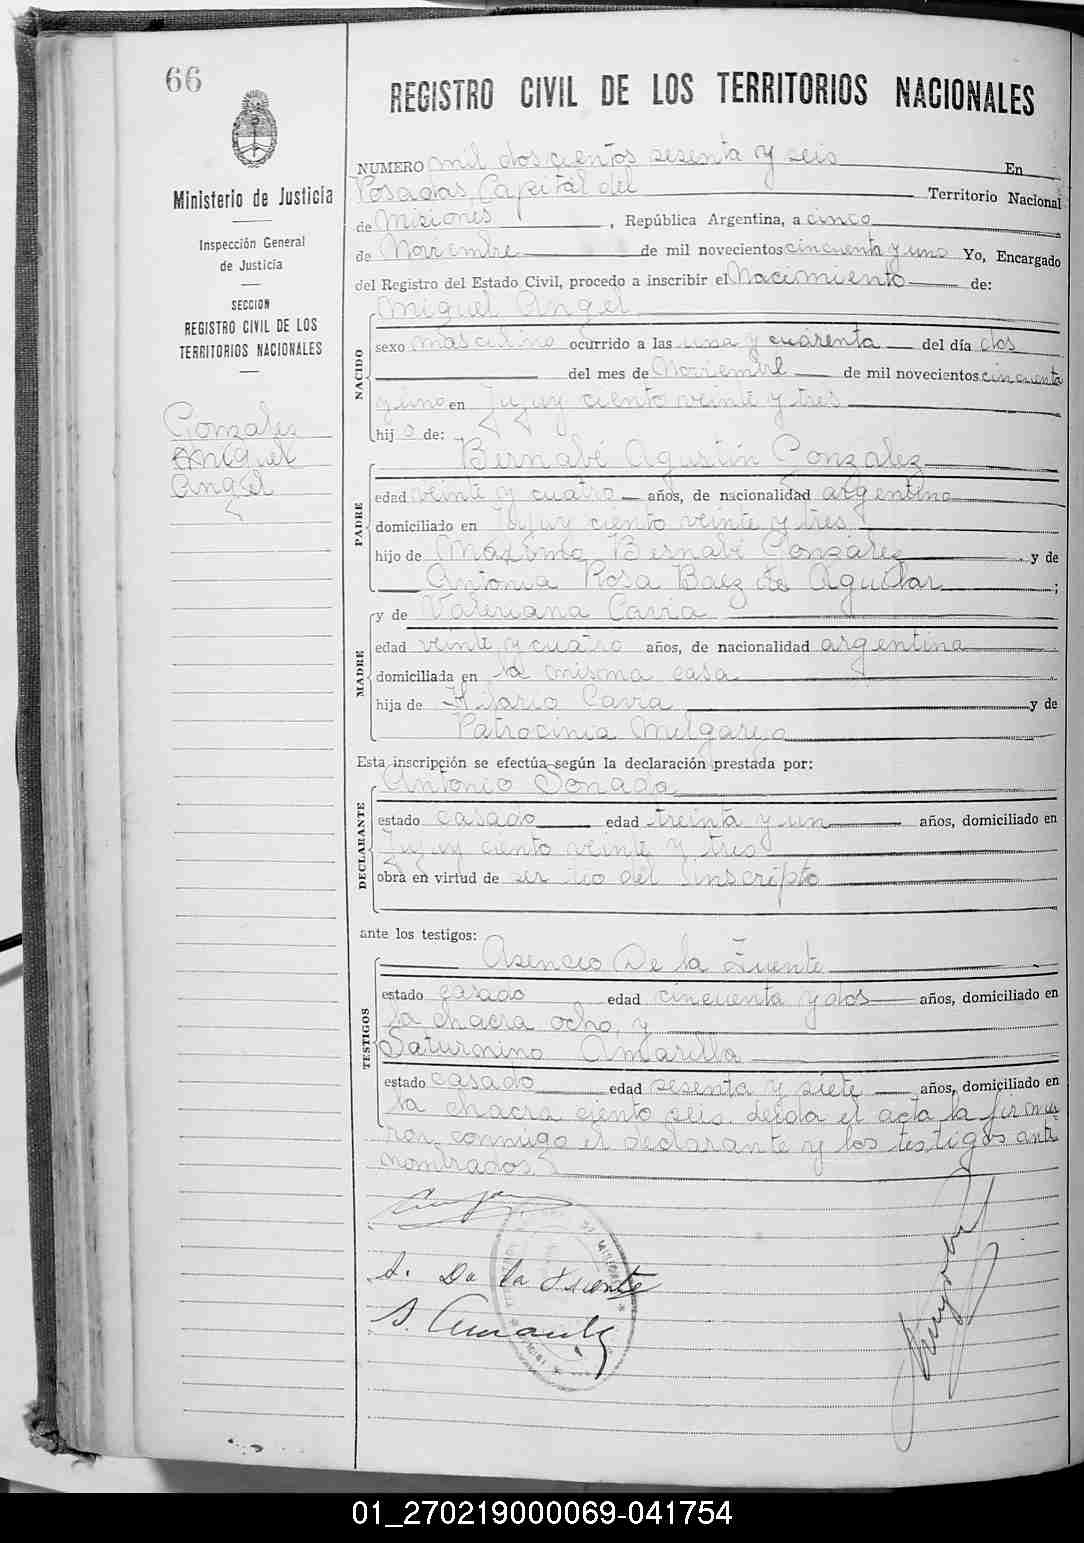 66
REGISTRO CIVIL DE LOS TERRITORIOS NACIONALES
Ministerio de Justicia
Inspección General
de Justicia
SECCION
REGISTRO CIVIL DE LOS
TERRITORIOS NACIONALES
Gonzalez
Miguel
Angel
NUMERO mil doscientos sesenta y seis En
Posadas, Capital del Territorio Nacional
de Misiones, República Argentina, a cinco
de Noviembre de mil novecientos cincuenta y uno Yo, Encargado
del Registro del Estado Civil, procedo a inscribir el Nacimiento de:
NACIDO
Miguel Angel
sexo masculino ocurrido a las una y cuarenta del día dos
del mes de Noviembre de mil novecientos cincuenta
y uno en Jujuy ciento veinte y tres
hijo de:
PADRE
Bernabé Agustin Gonzalez
edad veinte y cuatro años, de nacionalidad argentino
domiciliado en Jujuy ciento veinte y tres
hijo de Máximo Bernabé Gonzalez y de
Antonia Rosa Baez de Aguilar;
MADRE
y de Valeriana
edad veinte y cuatro años, de nacionalidad argentina
domiciliada en la misma casa
hija de Hilario y de
Patrocinia Melgarejo
Esta inscripción se efectúa según la declaración prestada por:
DECLARANTE
Antonio
estado casado edad treinta y un años, domiciliado en
Jujuy ciento veinte y tres
obra en virtud de ser tio del inscripto
ante los testigos:
TESTIGOS
Asencio De la Fuente
estado casado edad cincuenta y dos años, domiciliado en
la chacra ocho, y
Saturnino Amarilla
estado casado edad sesenta y siete años, domiciliado en
la chacra ciento seis. Leida el acta la firma
ron conmigo el declarante y los testigos ante
nombrados.
A. De la Fuente
S. Amarilla
01_270219000069-041754